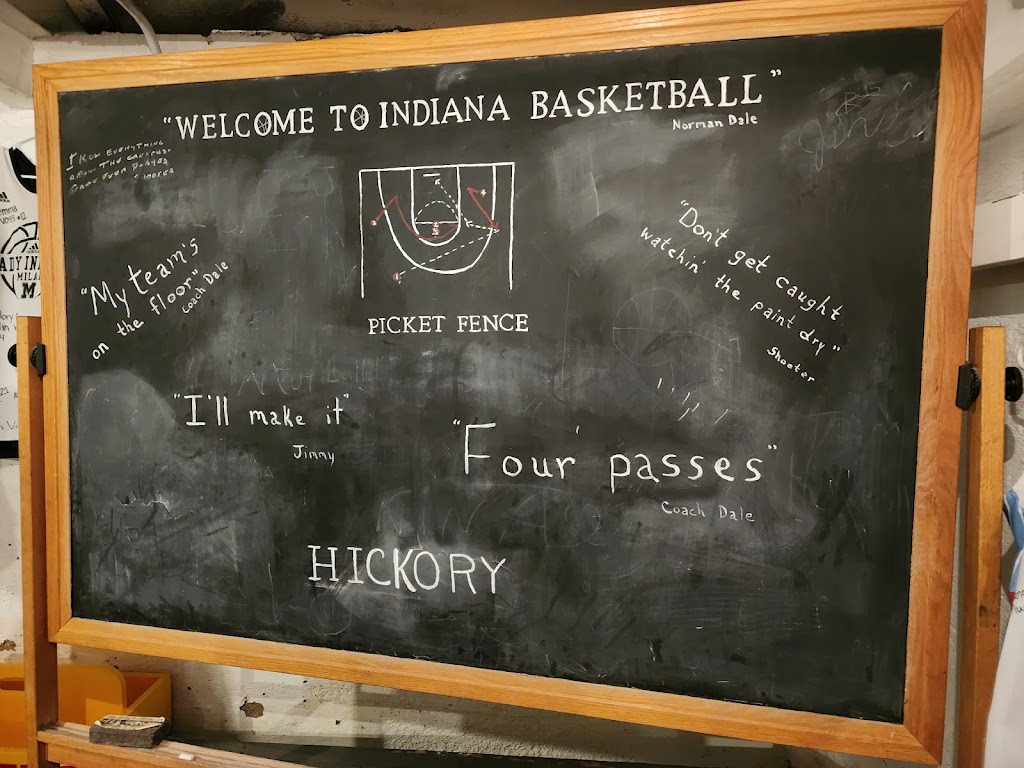 "WELCOME TO INDIANA BASKETBALL"
Norman Dale
I KNOW EVERYTHING
ABOUT THE GREATEST
GAME EVER PLAYED
SHOOTER
"My team's
on the floor"
Coach Dale
PICKET FENCE
"Don't get caught
watchin' the paint dry"
Shooter
"I'll make it"
Jimmy
"Four passes"
Coach Dale
HICKORY